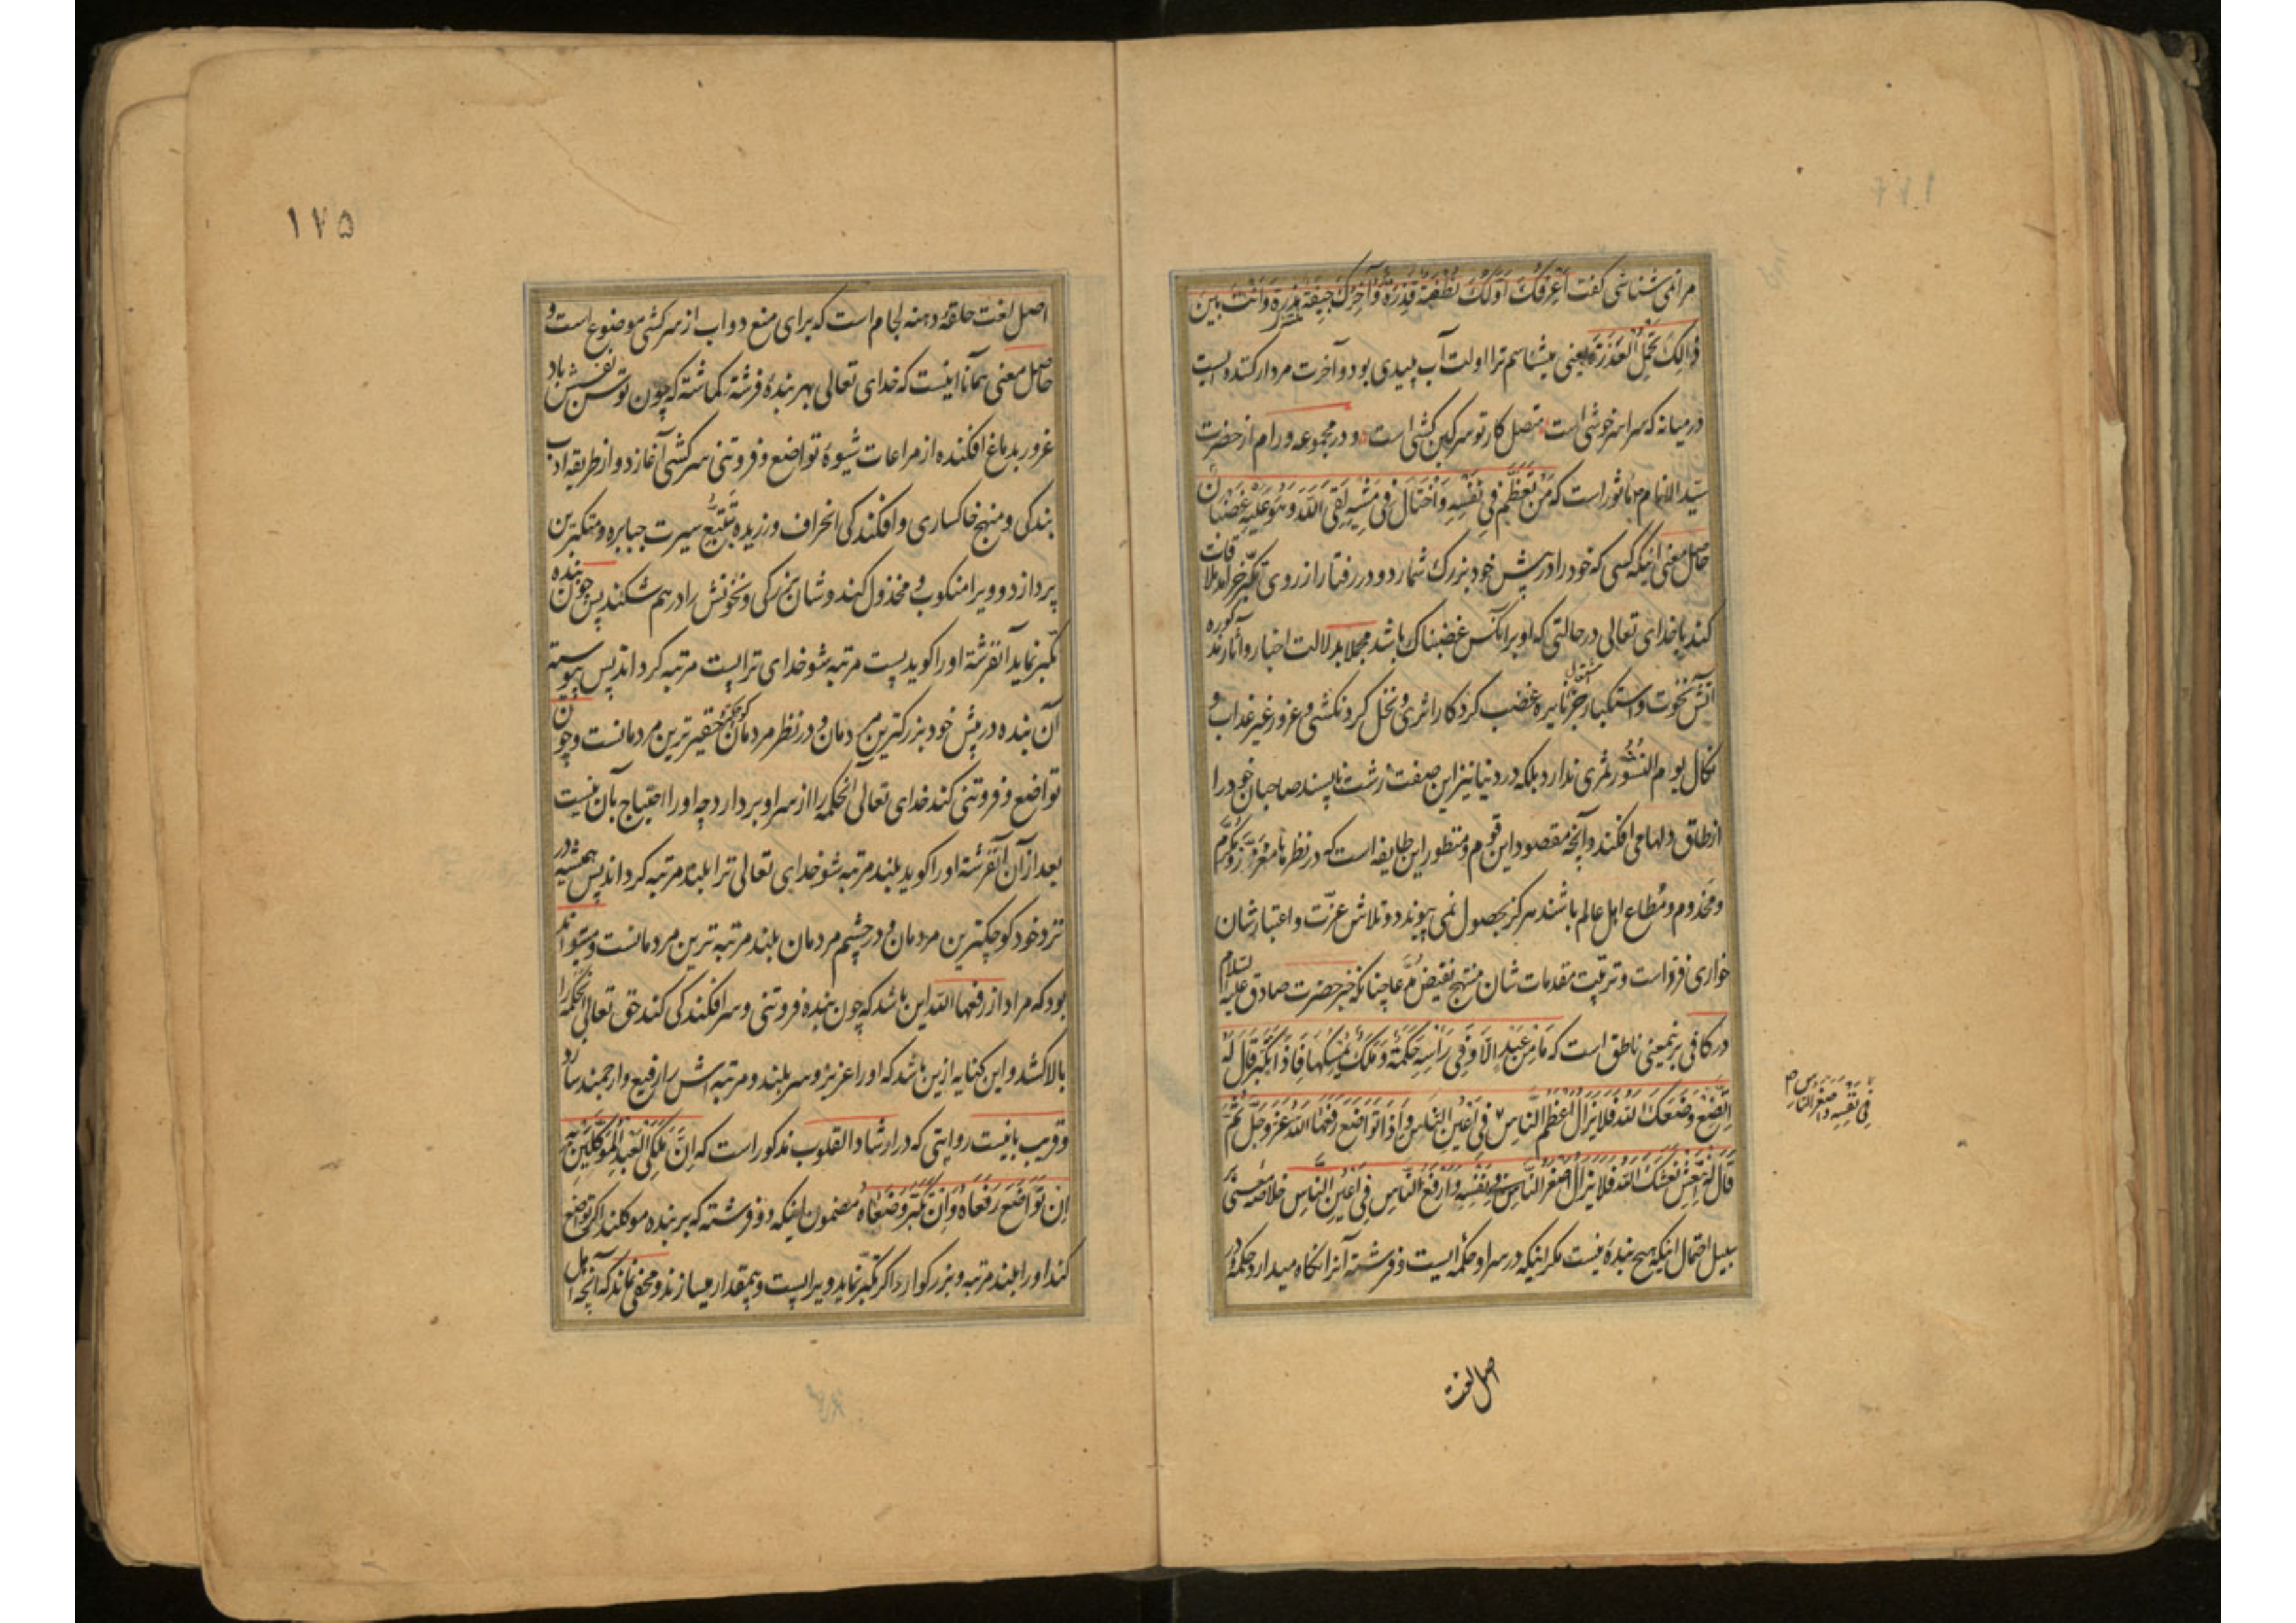 مرا نمی شناسی گفت اَعْرِفُکَ اَوَّلُکَ نُطْفَةٌ قَذِرَةٌ وَآخِرُکَ جِیفَةٌ مَذِرَة وَاَنْتَ بَیْنَ
ذٰالِکَ تَحْمِلُ الْعَذَرَةَ یعنی میشناسم ترا اولت آب پلیدی بود و آخرت مردار کنده ایست
در میانه که سراسر خوشی است متصل کار تو سرکین کشی است و در مجموعه ورام از حضرت
سیّد الانام ص ماثور است که مَنْ تَعَظَّمَ فِی نَفْسِهِ وَاخْتَالَ فِی مَشْیِهِ لَقِیَ اللّٰهَ وَهُوَ عَلَیْهِ غَضْبَانُ
حاصل معنی اینکه کسی که خود را در پیش خود بزرک شمارد و در رفتار از روی تکبّر خرامد ملاقات
کند با خدای تعالی در حالتی که او بر آنکس غضبناک باشد مجملا بدلالت اخبار و آثار مذکوره
آتش نخوت و استکبار جز اشتعال نایره غضب کردکار اثری و نخل کردنکشی و غرور غیر عذاب و
نکال یوم النُشُور ثمری ندارد بلکه در دنیا نیز این صفت زشت ناپسند صاحبان خود را
از طاق دلها می افکند و آنچه مقصود این قوم و منظور این طایفه است که در نظرها معزّز و مکرّم
و مخدوم و مُطاع اهل عالم باشند هرکز بحصول نمی پیوندد و تلاش عزّت و اعتبار شان
خواری فزا است و ترتیب مقدمات شان منتهج نقیض مدّعا چنانکه خبر حضرت صادق علیه السلام
در کافی برینمعنی ناطق است که مَا مِنْ عَبْدٍ اِلّا وَفِی رَأْسِهِ حَکَمَةٌ وَمَلَکٌ یُمْسِکُهَا فَاِذَا تَکَبَّرَ قَالَ لَهُ
اِتَّضِعْ وَضَعَکَ اللّٰهُ فَلَا یَزَالُ اَعْظَمَ النَّاسِ فِی اَعْیُنِ النَّاسِ وَاِذَا تَوَاضَعَ رَفَعَهَا اللّٰهُ عَزَّ وَجَلَّ ثُمَّ
قَالَ لَهُ اِنْتَعِشْ نَعَشَکَ اللّٰهُ فَلَا یَزَالُ اَصْغَرَ النَّاسِ فِی نَفْسِهِ وَاَرْفَعَ النَّاسِ فِی اَعْیُنِ النَّاسِ خلاصه معنی بر
سبیل احتمال اینکه هیچ بندهٔ نیست مکر اینکه در سر او حکمهٔ ایست و فرشته آنرا نکاه میدارد حکمهٔ در
فِی نَفْسِهِ وَاَصْغَرَ النَّاسِ
اصل لغت
۱۷۵
اصل لغت حلقهٔ دهنه لجام است که برای منع دواب از سرکشی موضوع است و
حاصل معنی همانا اینست که خدای تعالی بهر بندهٔ فرشتهٔ کماشته که چون توسن نفسش باد
غرور بدماغ افکنده از مراعات شیوهٔ تواضع و فروتنی سرکشی آغازد و از طریقه ادب
بندکی و منهج خاکساری و افکندکی انحراف ورزیده بتَتَبُّع سیرت جبابره و متکبّرین
پردازد و ویرا منکوب و مخذول کند و شان بزرکی و نخوتش را در هم شکند پس چون بنده
تکبّر نماید آنفرشته او را کوید پست مرتبه شو خدای ترا پست مرتبه کرداند پس پیوسته
آن بنده در پیش خود بزرکترین مردمان و در نظر مردمان کوچکتر حقیرترین مردمانست و چون
تواضع و فروتنی کند خدای تعالی آنحکمه را از سر او بردارد چه او را احتیاج بآن نیست
بعد از آن آنفرشته او را کوید بلند مرتبه شو خدای تعالی ترا بلند مرتبه کرداند پس همیشه در
نزد خود کوچکترین مردمان و در چشم مردمان بلند مرتبه ترین مردمانست و میتواند
بود که مراد از رفعها اللّه این باشد که چون بنده فروتنی و سرافکندکی کند حق تعالی آنحکمه را
بالا کشد و این کنایه ازین باشد که او را عزیز و سربلند و مرتبه اش را رفیع و ارجمند سازد
و قریب باینست روایتی که در ارشاد القلوب مذکور است که اِنَّ مَلَکَیِ الْعَبْدِ الْمُوَکَّلَیْنِ بِهِ
اِنْ تَوَاضَعَ رَفَعَاهُ وَاِنْ تَکَبَّرَ وَضَعَاهُ مضمون اینکه دو فرشته که بر بنده موکلند اکر تواضع
کند او را بلند مرتبه و بزرکوار و اکر تکبّر نماید ویرا پست و بیمقدار میسازند و مخفی نماند که آنچه اهل